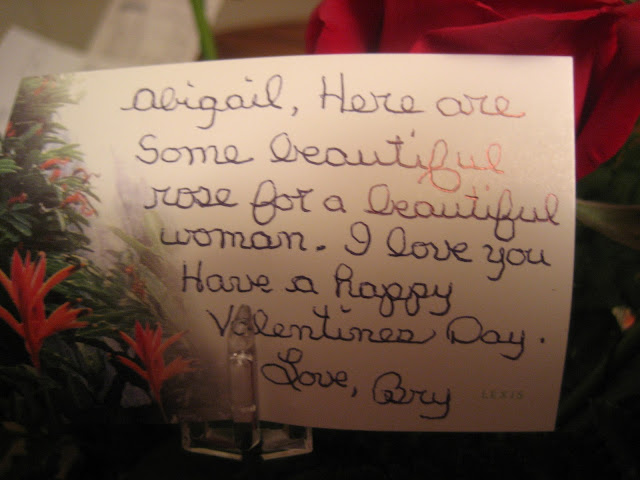 Abigail, Here are
Some beautiful
rose for a beautiful
woman. I love you
Have a happy
Valentines Day.
Love, Bry
LEXIS